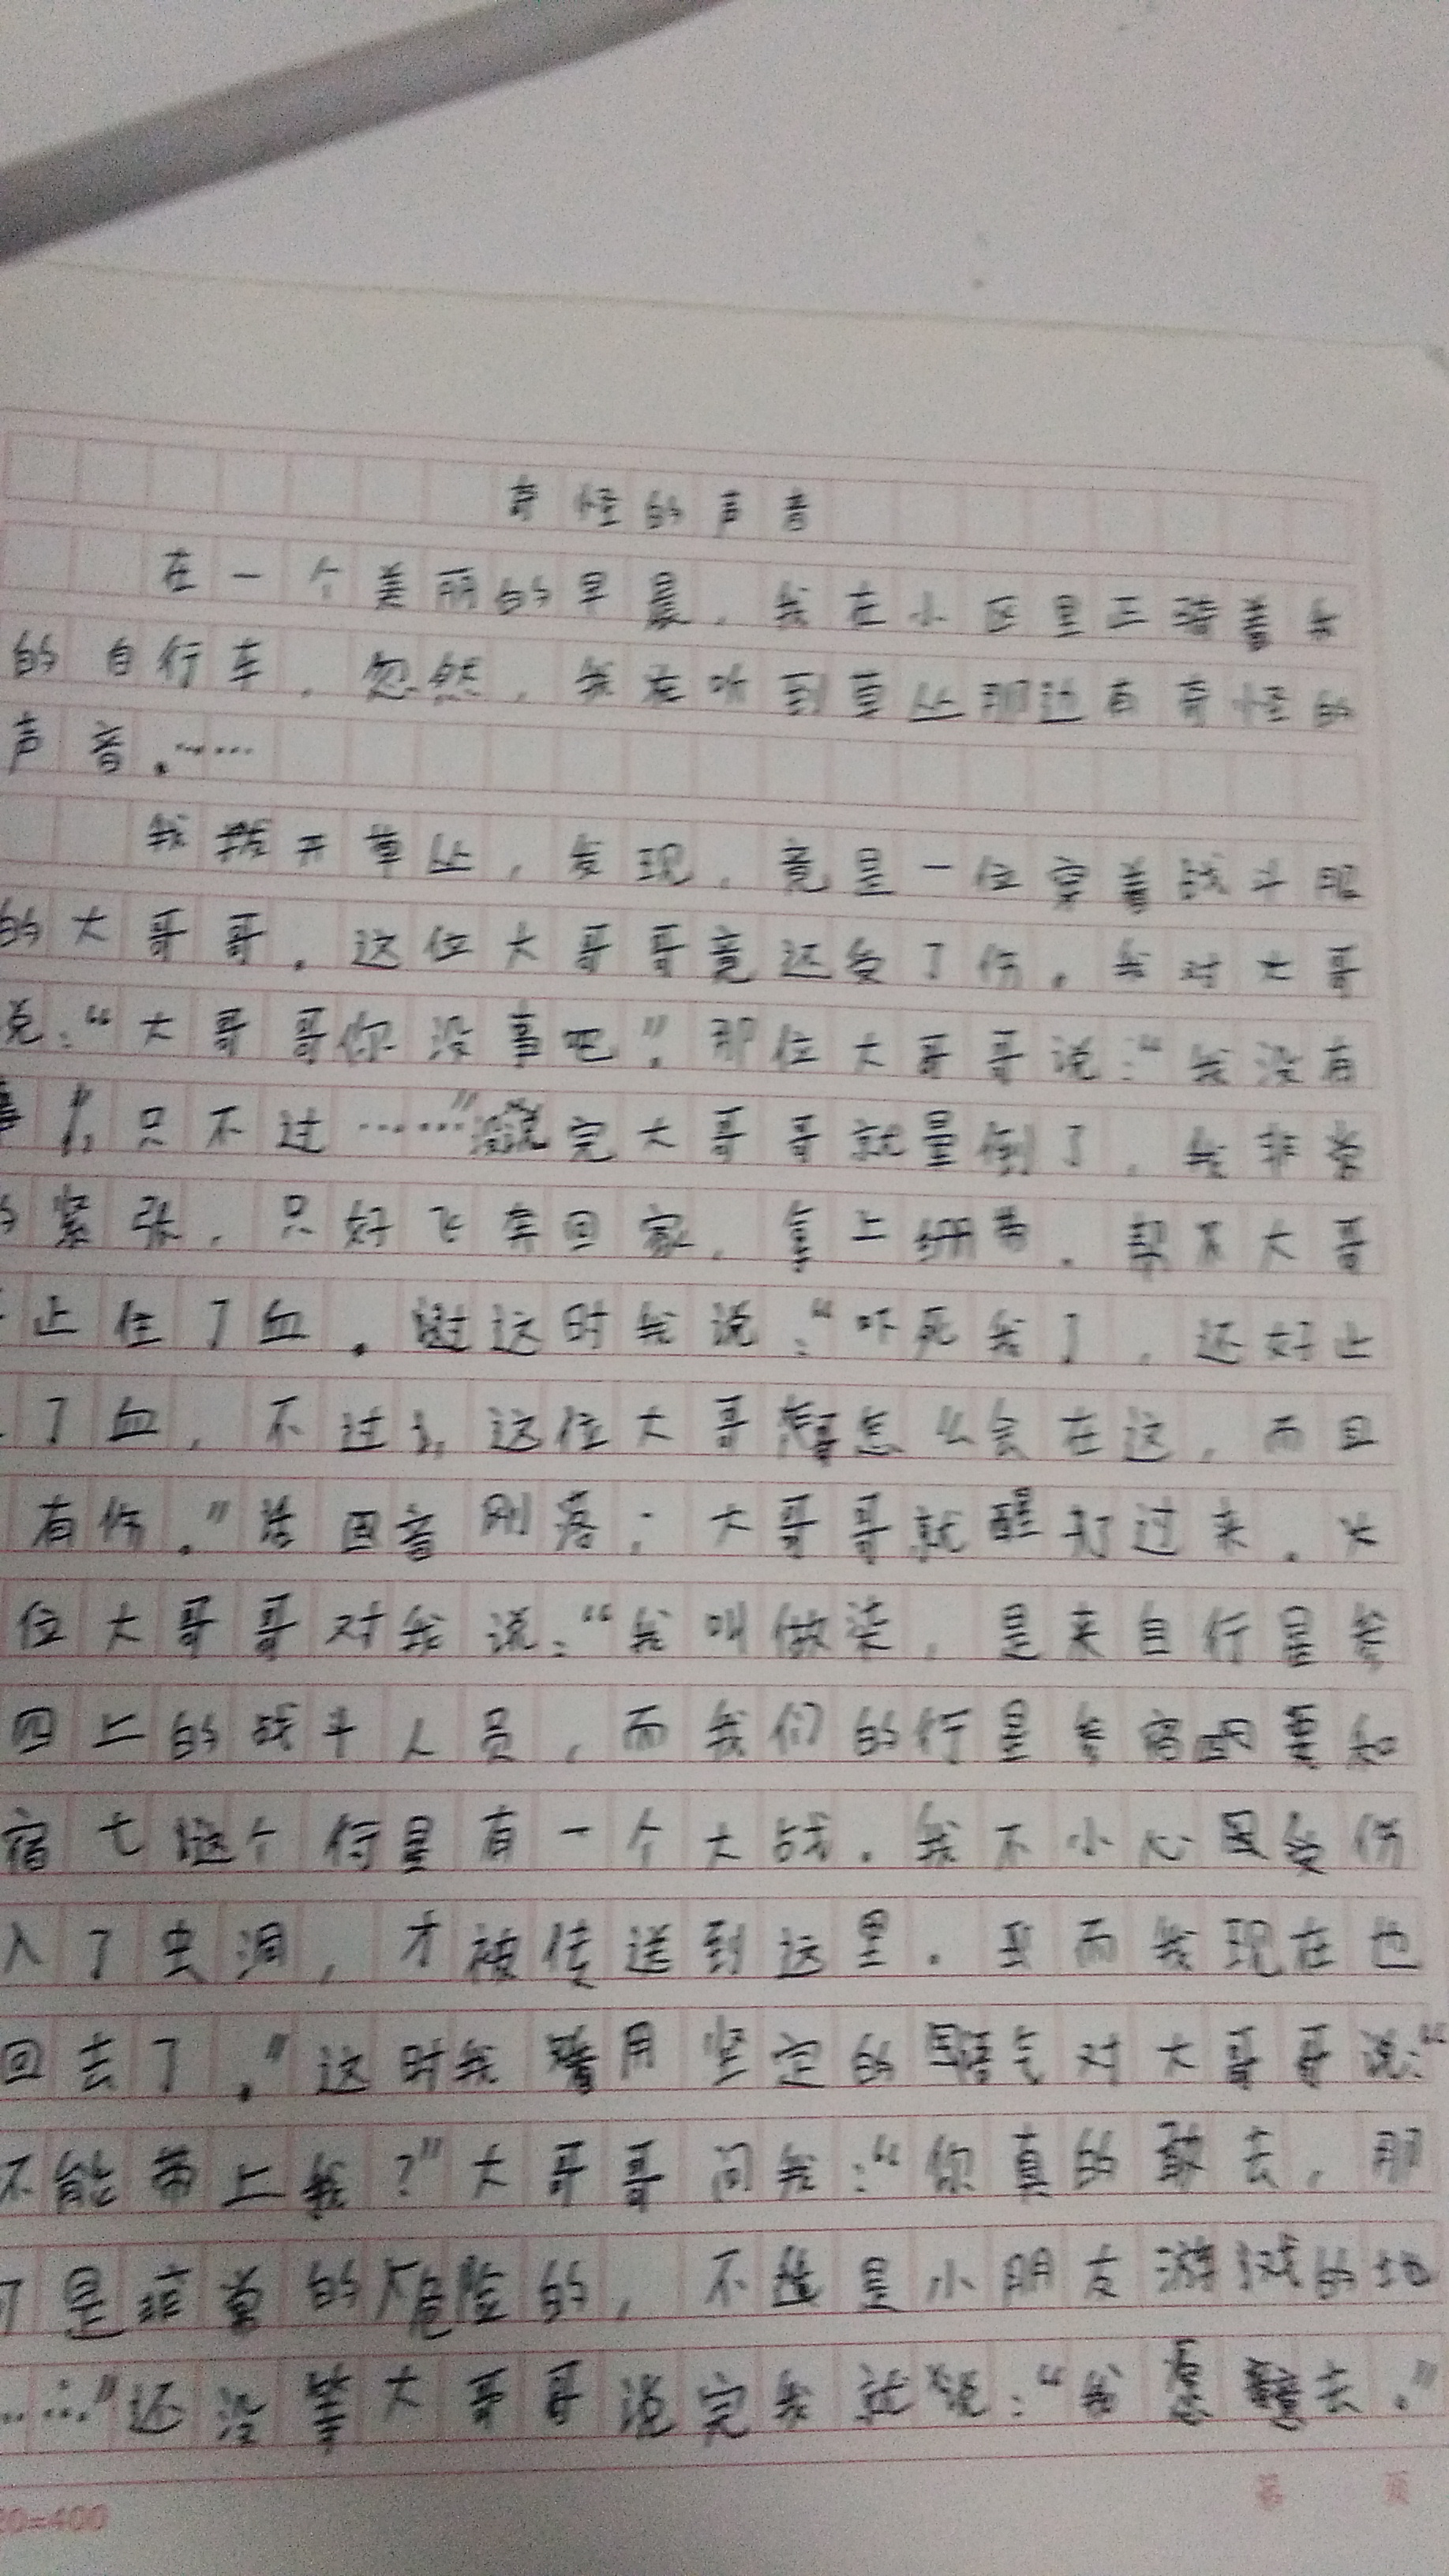 奇怪的声音
在一个美丽的早晨，我在小区里正骑着我
的自行车，忽然，我在听到草丛那边有奇怪的
声音。……
我拨开草丛，发现，竟是一位穿着战斗服
的大哥哥。这位大哥哥竟还受了伤。我对大哥
说：“大哥哥你没事吧”。那位大哥哥说：“我没有
事，只不过……”没说完大哥哥就晕倒了，我非常
的紧张，只好飞奔回家，拿上绷带，帮大哥
止住了血。这时我说：“吓死我了，还好止
了血，不过，这位大哥哥怎么会在这，而且
有伤。”话音刚落，大哥哥就醒了过来。
位大哥哥对我说：“我叫做柒，是来自行星参
四上的战斗人员，而我们的行星参宿四要和
宿七这个行星有一个大战。我不小心受伤
入了虫洞，才被传送到这里。而我现在也
回去了。”这时我用坚定的语气对大哥哥说：“
不能带上我？”大哥哥问我：“你真的敢去，那
可是非常的危险的，不是小朋友游戏的地
……”还没等大哥哥说完我就说：“我愿意去。”
第 页
20=400